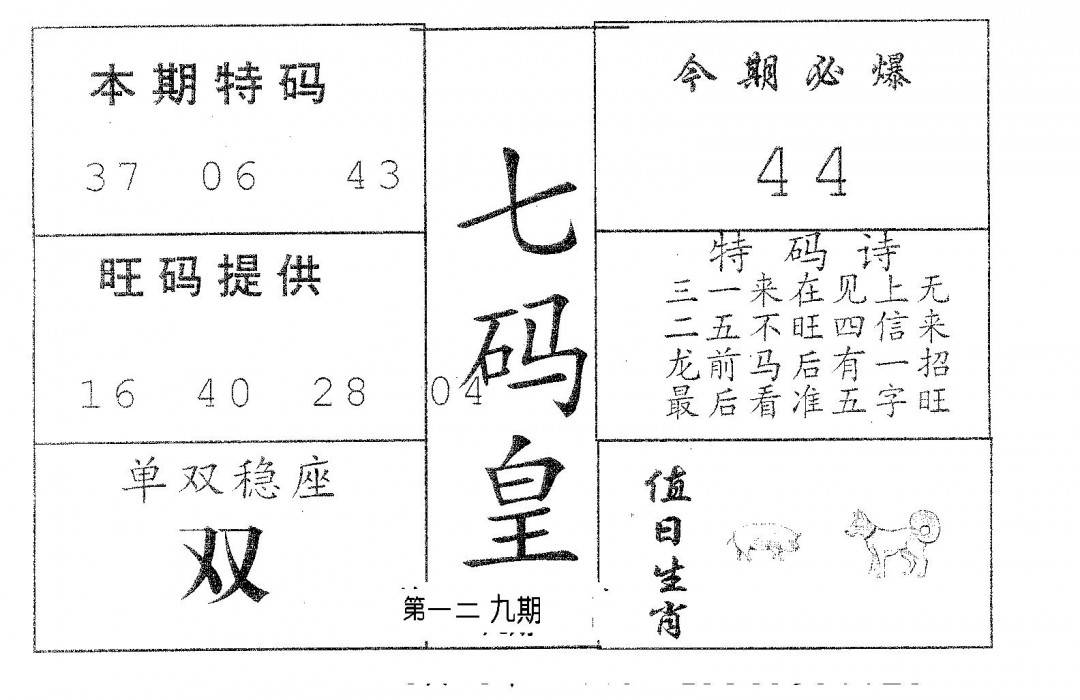 本期特码
37 06 43
旺码提供
16 40 28 04
单双稳座
双
七码皇
第一二九期
今期必爆
44
特码诗
三一来在见上无
二五不旺四信来
龙前马后有一招
最后看准五字旺
值日生肖